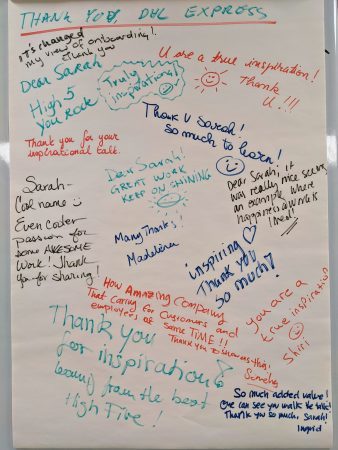 THANK YOU, DHL EXPRESS
it's changed
my view of onboarding!.
Thank you
U are a true inspiration!
Thank
U.!!!
Dear Sarah
High 5
You Rock
Truly
inspirational!
Thank U Sarah!
So much to learn!
Thank you for your
inspirational talk.
Dear Sarah!
GREAT WORK
KEEP ON SHINING
Dear Sarah, it
was really nice seeing
an example where
happiness @work is
lined!
Sarah-
Cool name
Even cooler
passion for
some AWESOME
Work! Thank
you for sharing!
Many Thanks!
Madelena
inspiring
Thank you
so much!
How Amazing Company
That caring for Customers and
employees at Same TIME!!
Thank you to sharing this!
you are a
true inspiration
Shiri
Thank you
for inspiration &
learning from the best
High Five!
So much added value!
One can see you walk the talk!
Thank you so much, Sarah!
Ingrid